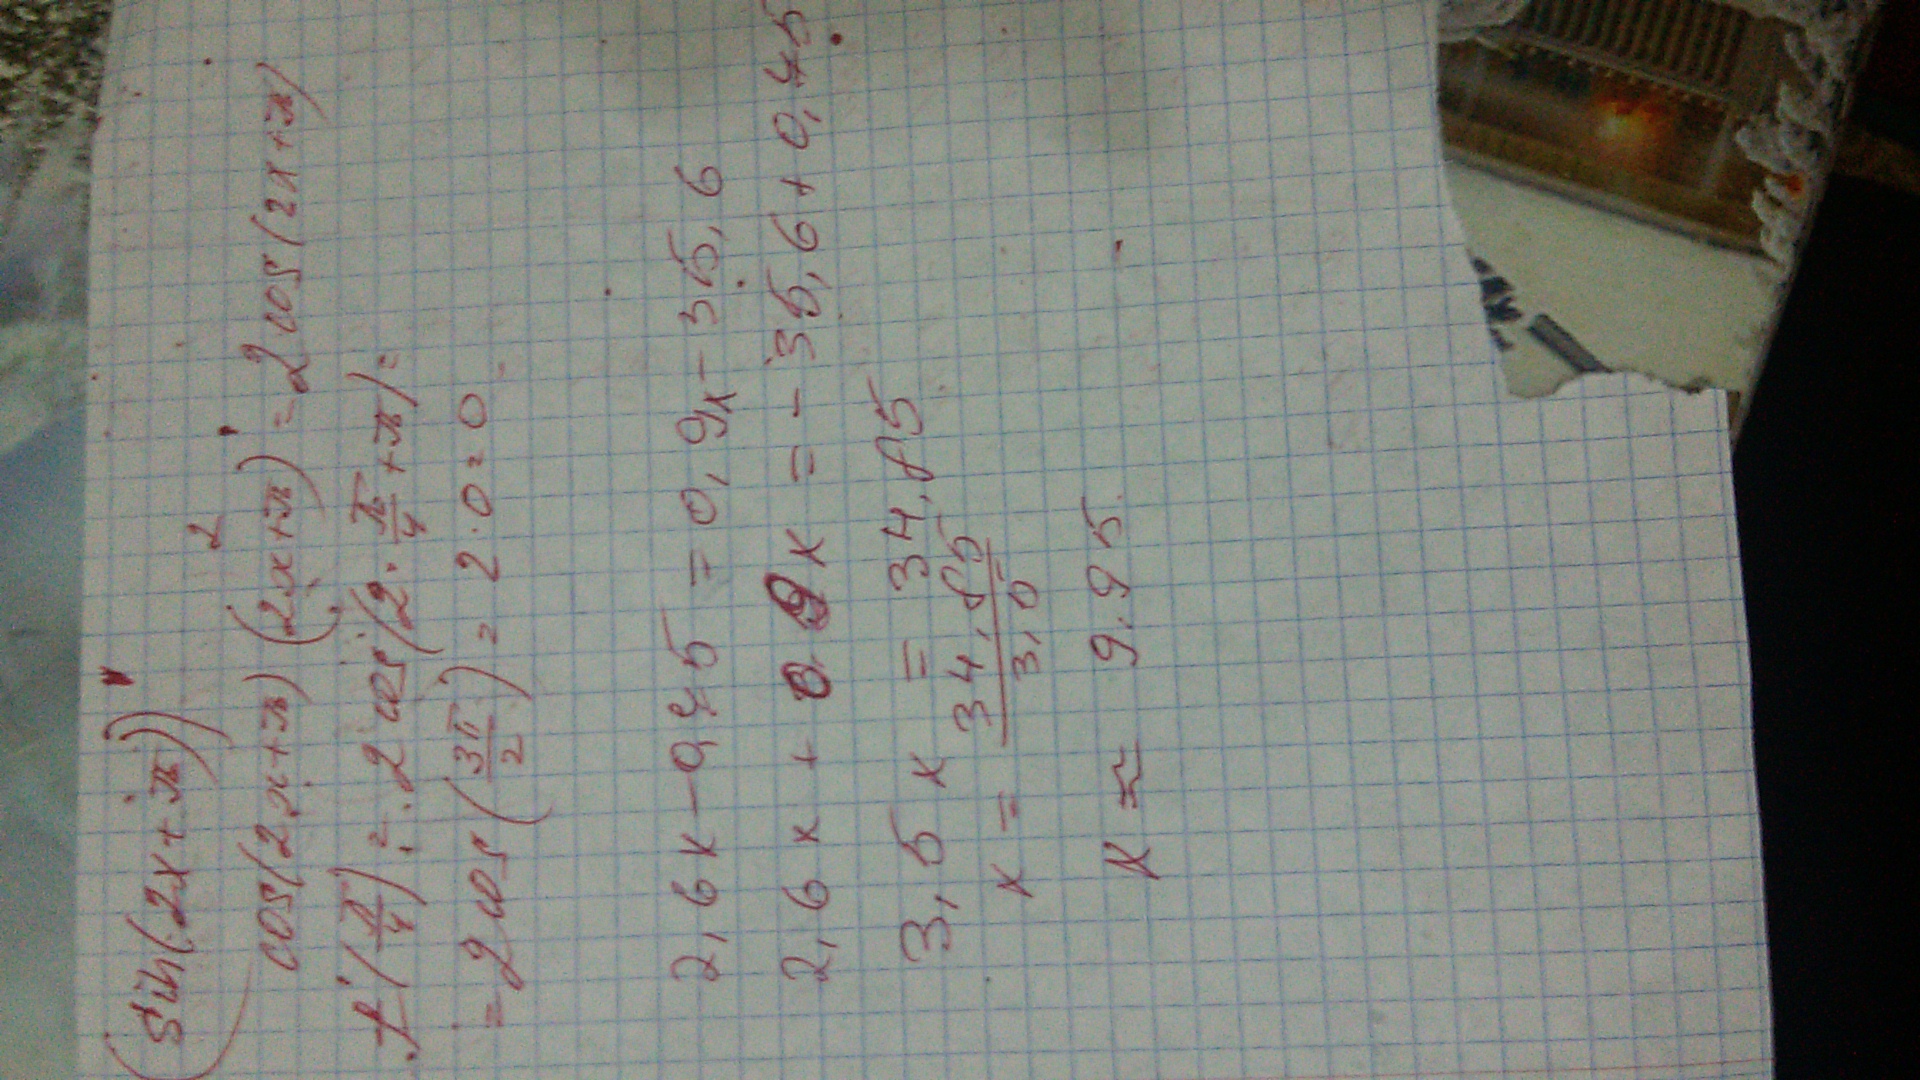 (sin(2x+π))' =
cos(2x+π)(2x+π)' = 2cos(2x+π)
f'(π/4) = 2cos(2·π/4+π) =
= 2cos(3π/2) = 2·0=0
2,6x-0,75 = 0,9x-35,6
2,6x+0.9x = -35,6+0,75
3,5x = 34,85
x = 34,85/3,5
x ≈ 9.95